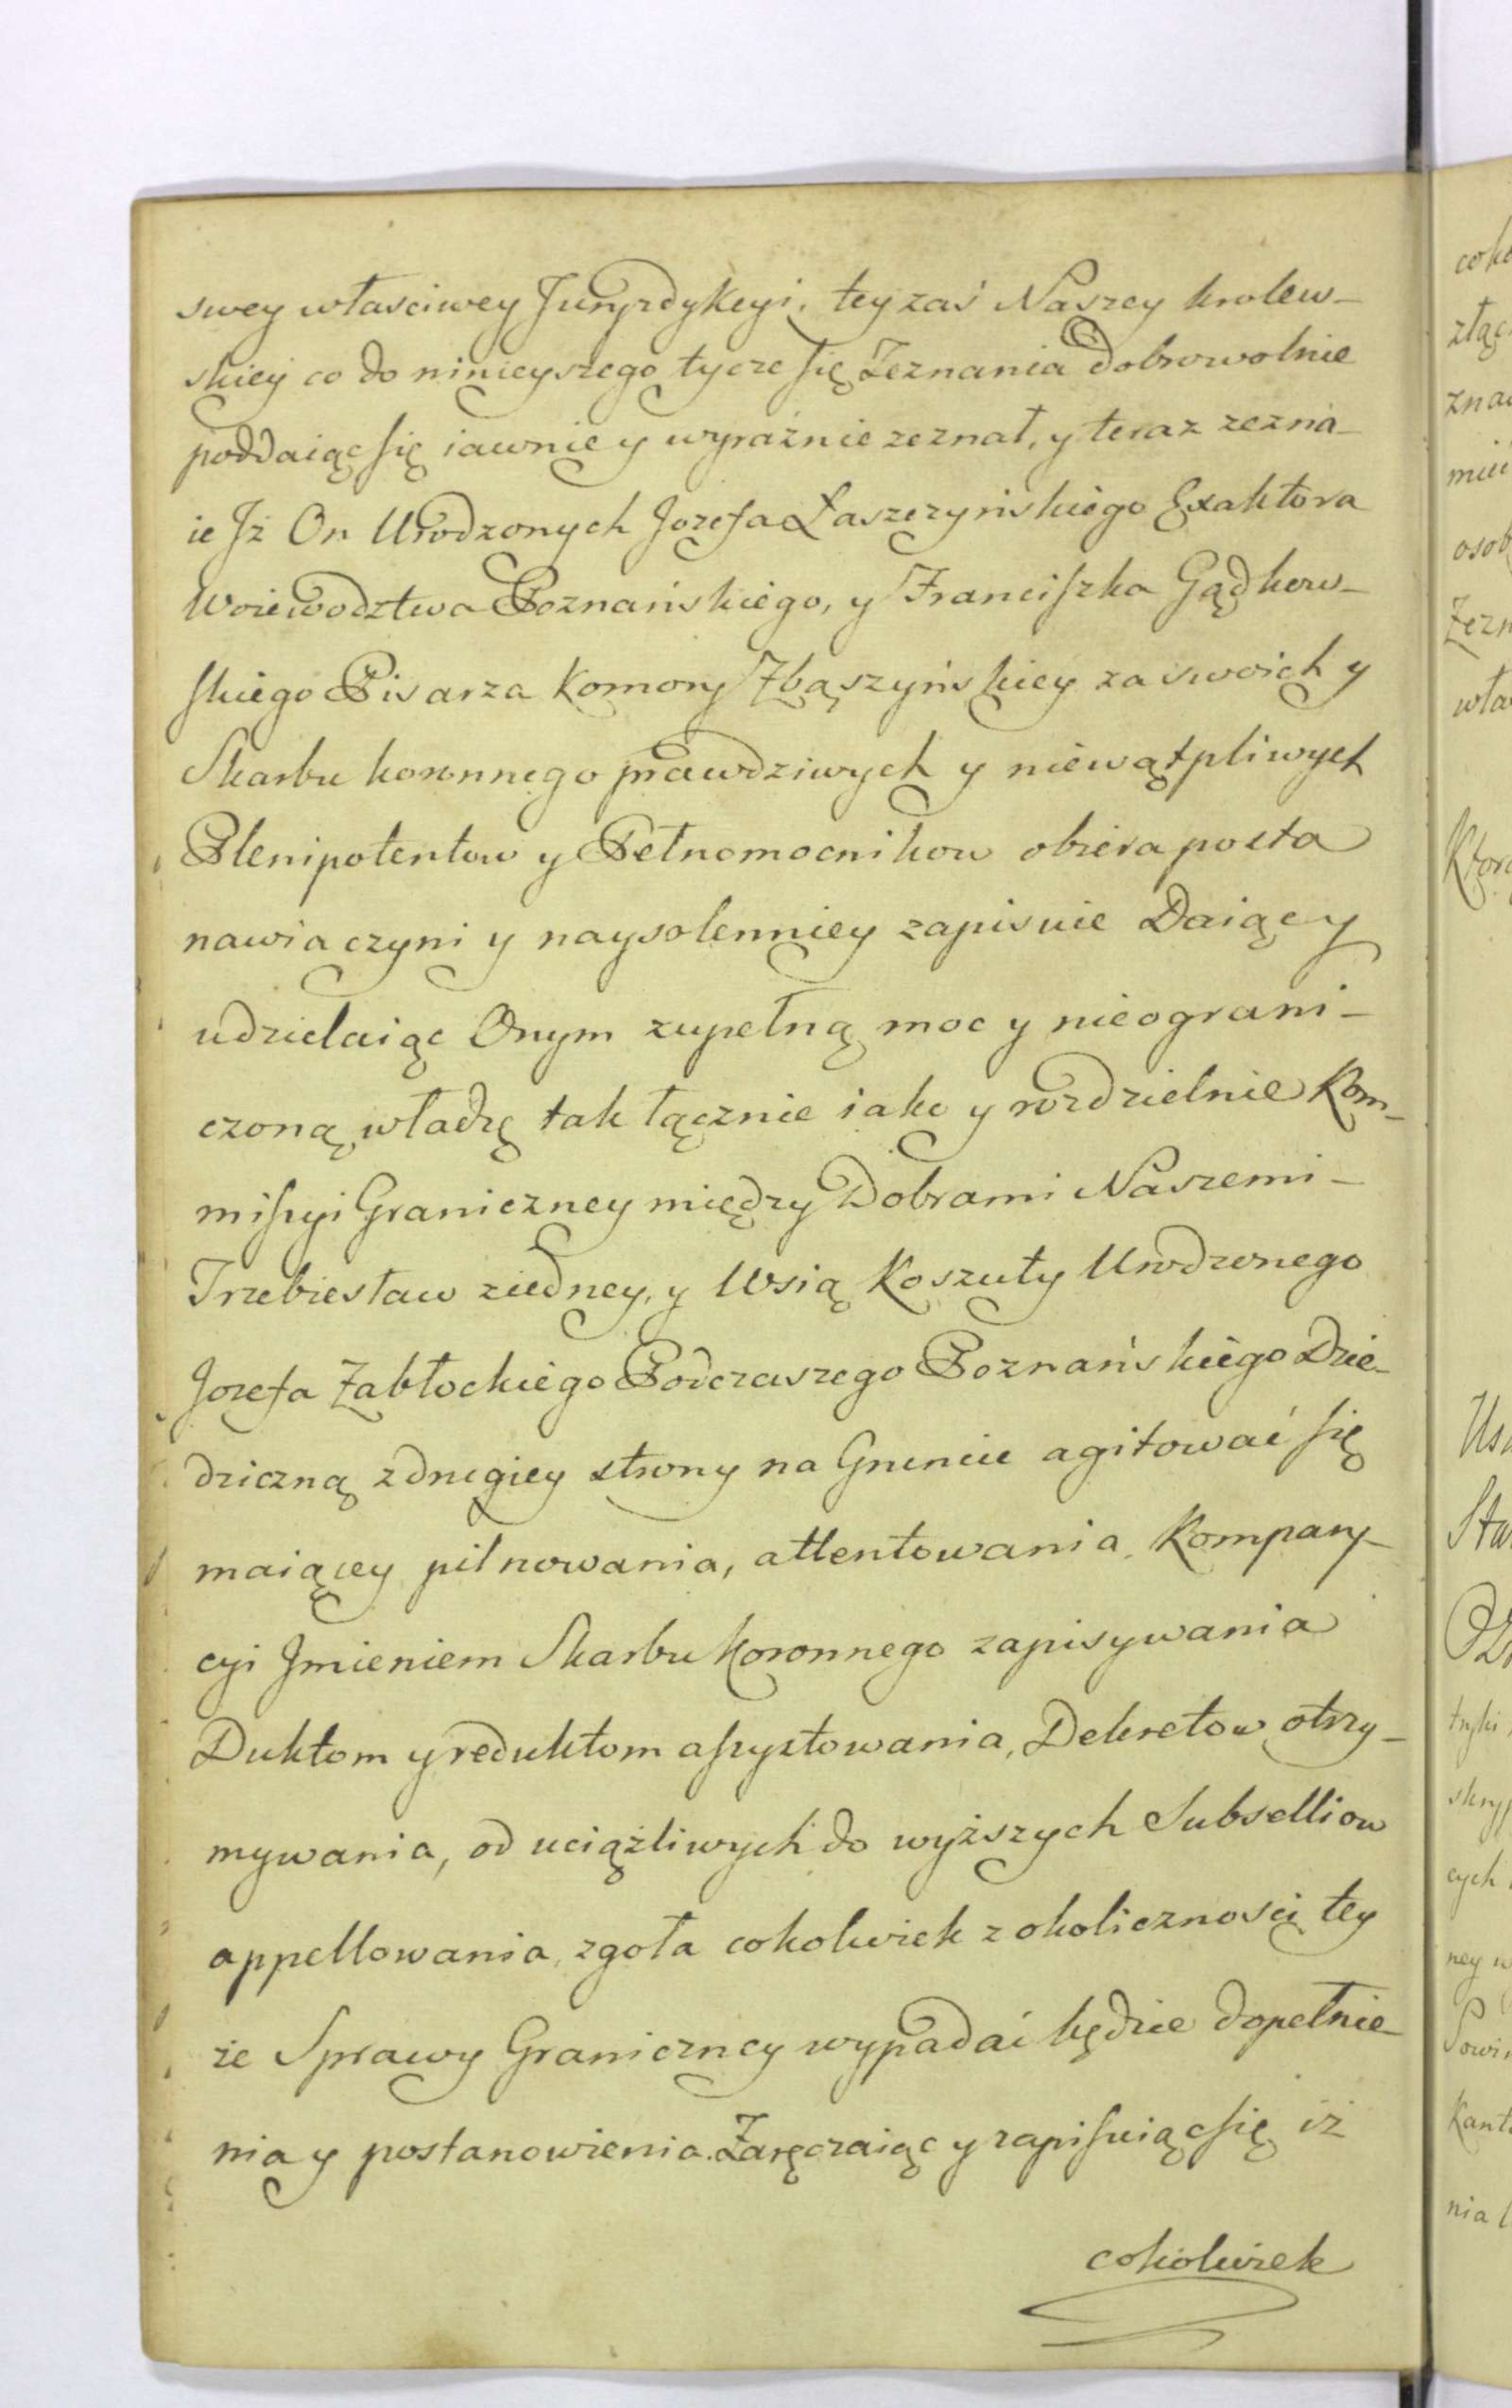 swey właściwey Juryzdykcyi, tey zaś Naszey krolew-
skiey co do ninieyszego tycze się Zeznania dobrowolnie
poddaiąc się iawnie y wyraźnie zeznał, y teraz zezna-
ie Jż On Urodzonych Jozefa Łaszczyńskiego Exaktora
Woiewodztwa Poznańskiego, y Franciszka Gądkow-
skiego Pisarza Komory Zbąszyńskiey za swoich y
Skarbu koronnego prawdziwych y niewątpliwych
Plenipotentow y Pełnomocnikow obiera posta
nawia czyni y naysolenniey zapisuie Daiąc y
udzielaiąc Onym zupełną moc y nieograni-
czoną władzę tak łącznie iako y rozdzielnie Kom-
missyi Graniczney między Dobrami Naszemi-
Trzebiesław ziedney, y Wsią Koszuty Urodzonego
Jozefa Zabłockiego Podczaszego Poznańskiego Dzie-
dziczną z drugiey strony na Gruncie agitować się
maiącey pilnowania, attentowania, Kompary-
cyi Jmieniem Skarbu Koronnego zapisywania
Duktom y reduktom assystowania, Dekretow otrzy-
mywania, od uciążliwych do wyższych Subselliow
appellowania, zgoła cokolwiek z okoliczności tey
że Sprawy Graniczney wypadać będzie dopełnie-
nia y postanowienia. Zaręczaiąc y zapisuiąc się iż
cokolwiek